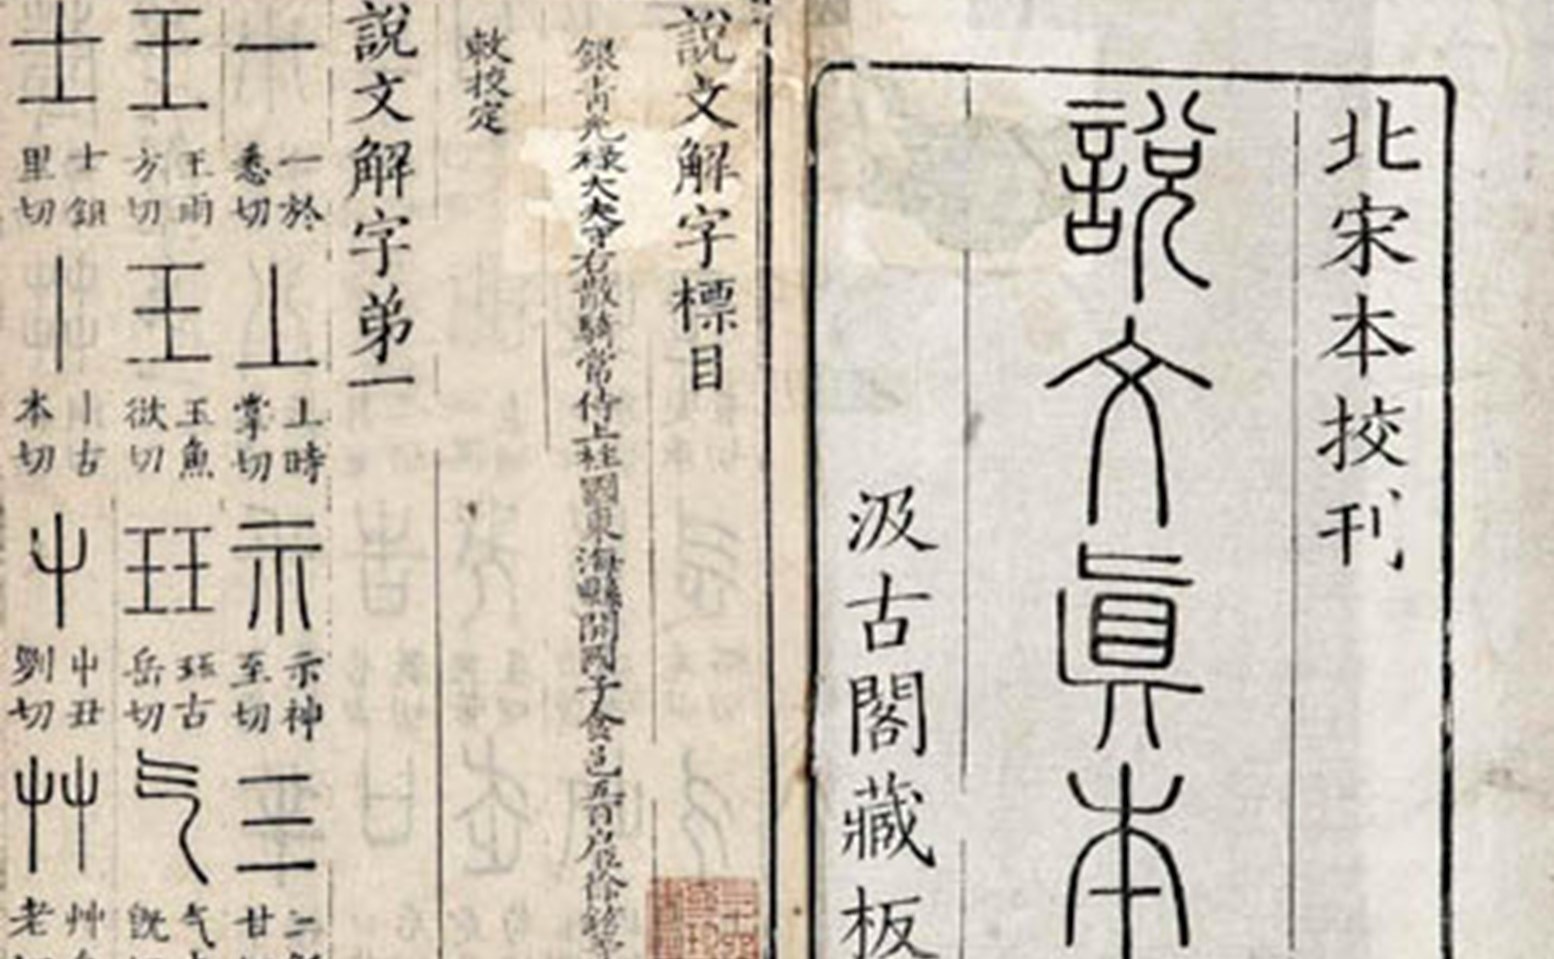 北宋本挍刊
說文眞本
汲古閣藏板
說文解字標目
銀青光祿大夫守右散騎常侍上柱國東海縣開國子食邑五百戶臣徐鉉等
敕挍定
說文解字弟一
一 一於悉切 丄 丄時掌切 示 示神至切 三 三 甘
王 王雨方切 王 玉魚欲切 玨 玨古岳切 气 气 既
士 士鉏里切 丨 丨古本切 屮 屮丑 切 艸 艸 老